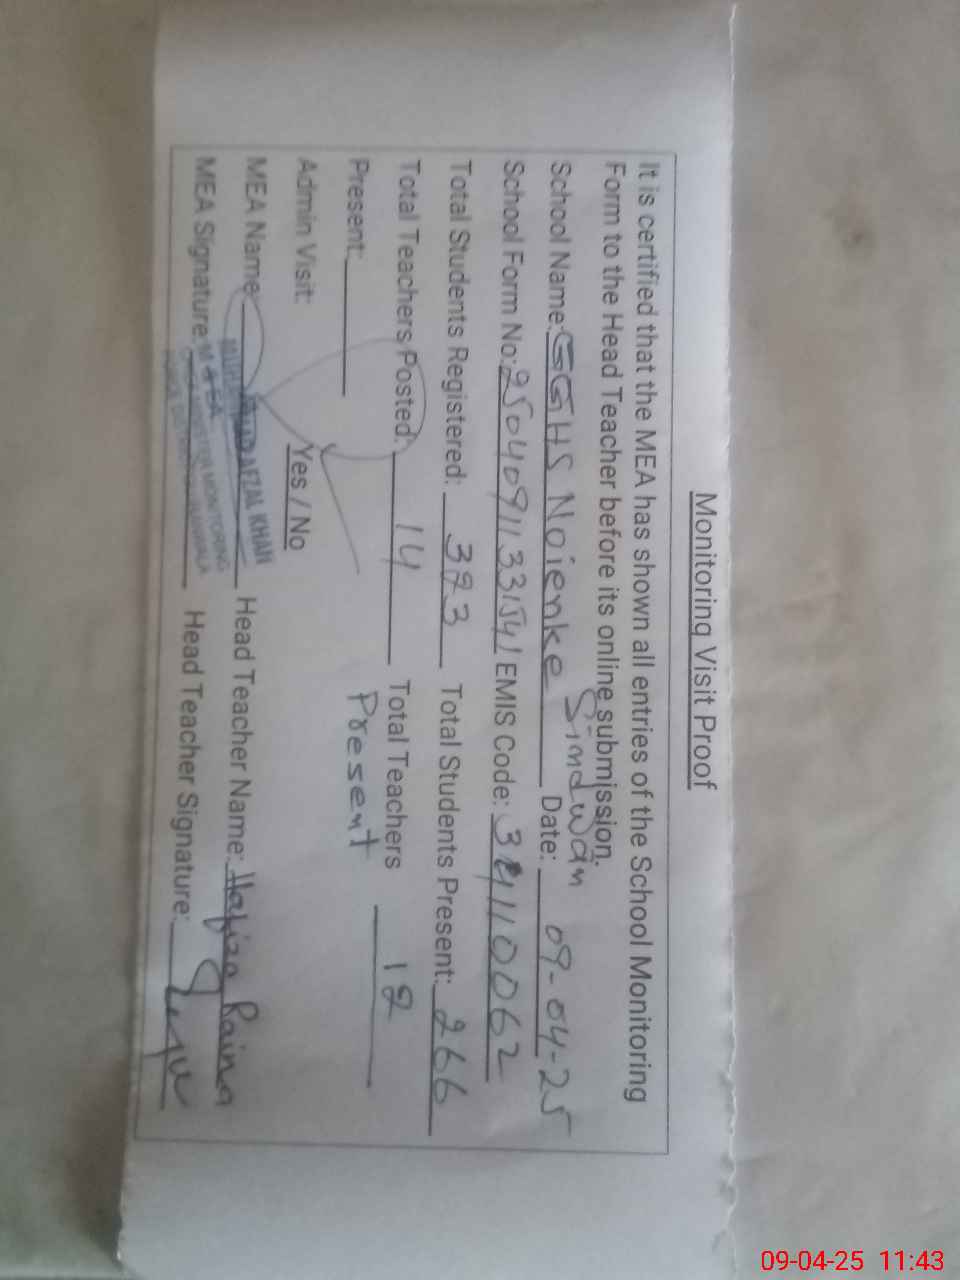 Monitoring Visit Proof
It is certified that the MEA has shown all entries of the School Monitoring
Form to the Head Teacher before its online submission.
School Name: GGHS Noienke Sindwan Date: 09-04-25
School Form No: EMIS Code:
Total Students Registered: 373 Total Students Present: 266
Total Teachers Posted: 14 Total Teachers 12
Present: Present
Admin Visit: Yes / No
MEA Name: AFZAL KHAN Head Teacher Name: Hafiza Raina
MEA Signature: MEA Head Teacher Signature:
MONITORING
09-04-25 11:43